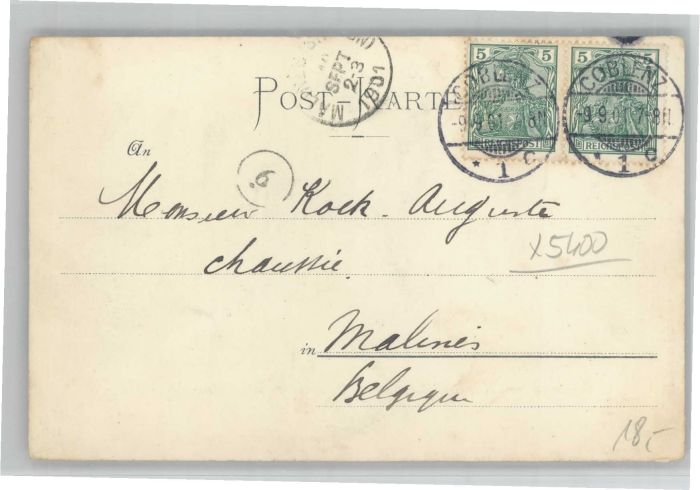 SEPT
2-3
1901
5 5 5
COBLENZ COBLENZ
-9.9.01. -9.9.01. 7-8N.
* 1 C * 1 C
REICHSPOST
POST-KARTE
An
6.
Monsieur Kock-Auguste
chaussée
X5400
in Malines
Belgique
18,-